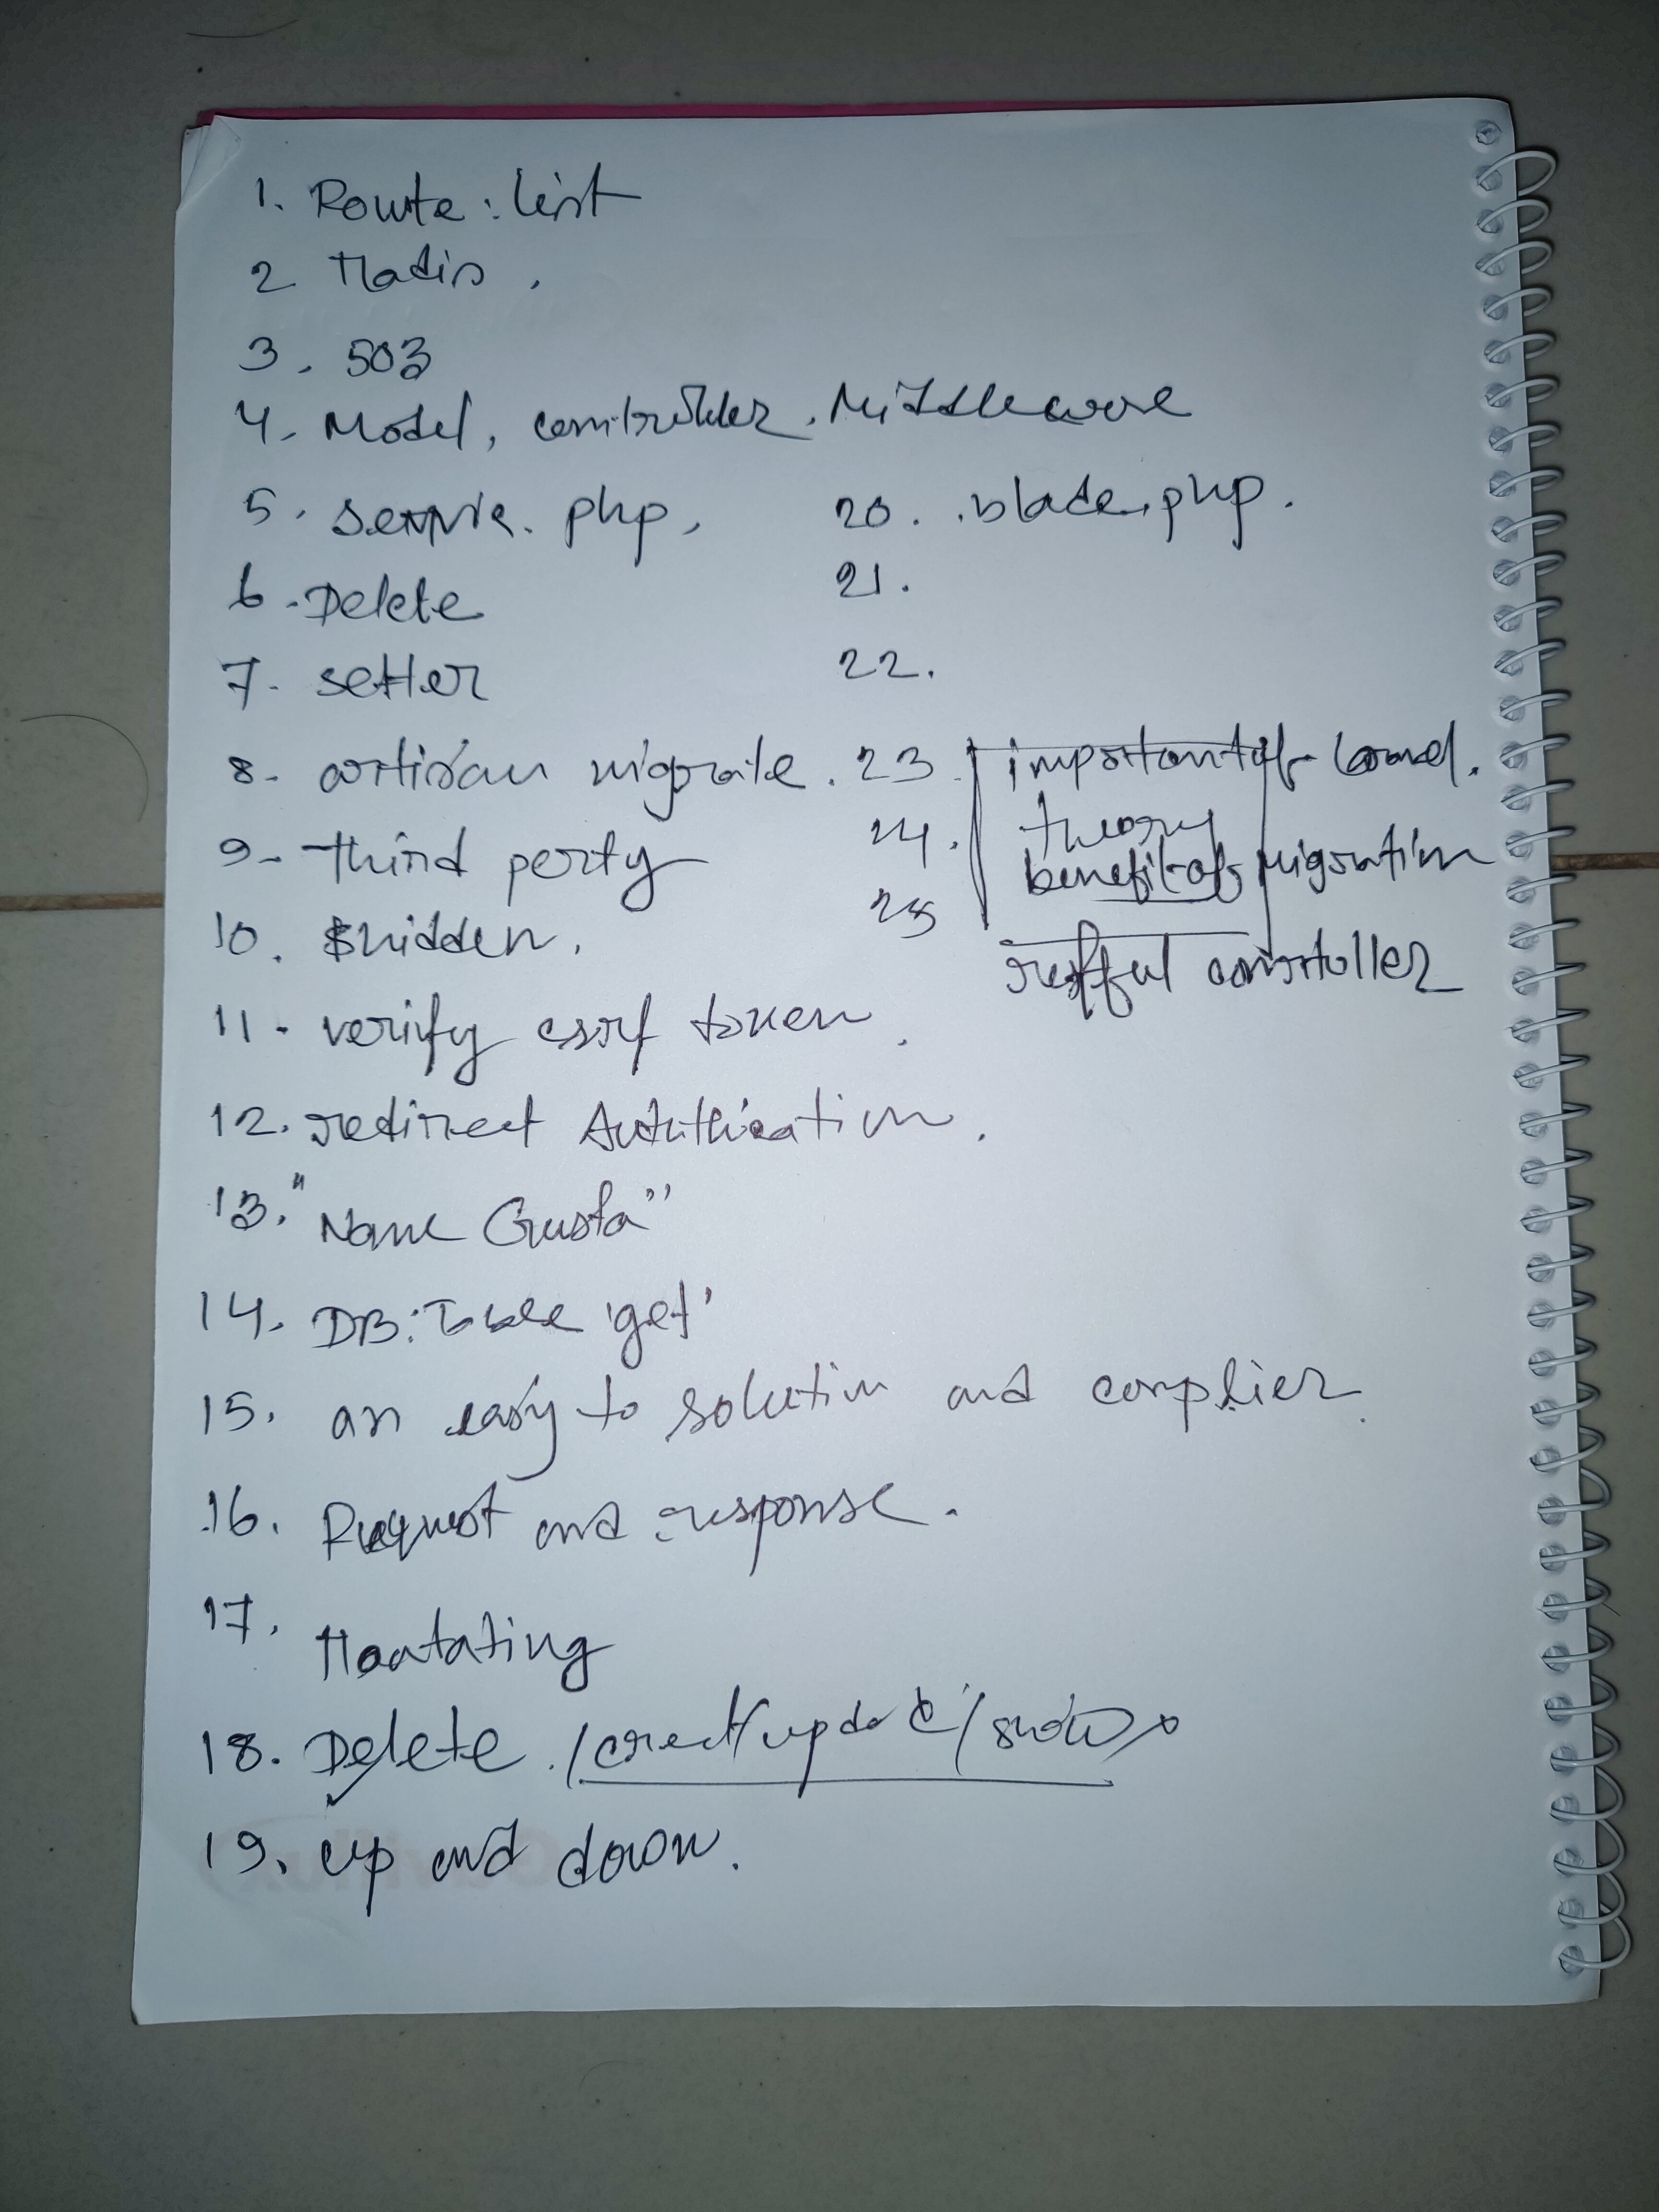 1. Route : list
2
3. 503
4. Model, controller. Middleware
5. php,
6. Delete
7. setter
8. artisan migrate.
9. third perty
10. $hidden.
11. verify csrf token.
12. redirect
13. "Name
14. DB: Table 'get'
15. an easy to solution and complier.
16. Request and response.
17.
18. Delete. / /update/show
19. up and down.
20. .blade.php.
21.
22.
23. important of
24. theory
benefit of migration
25
restful